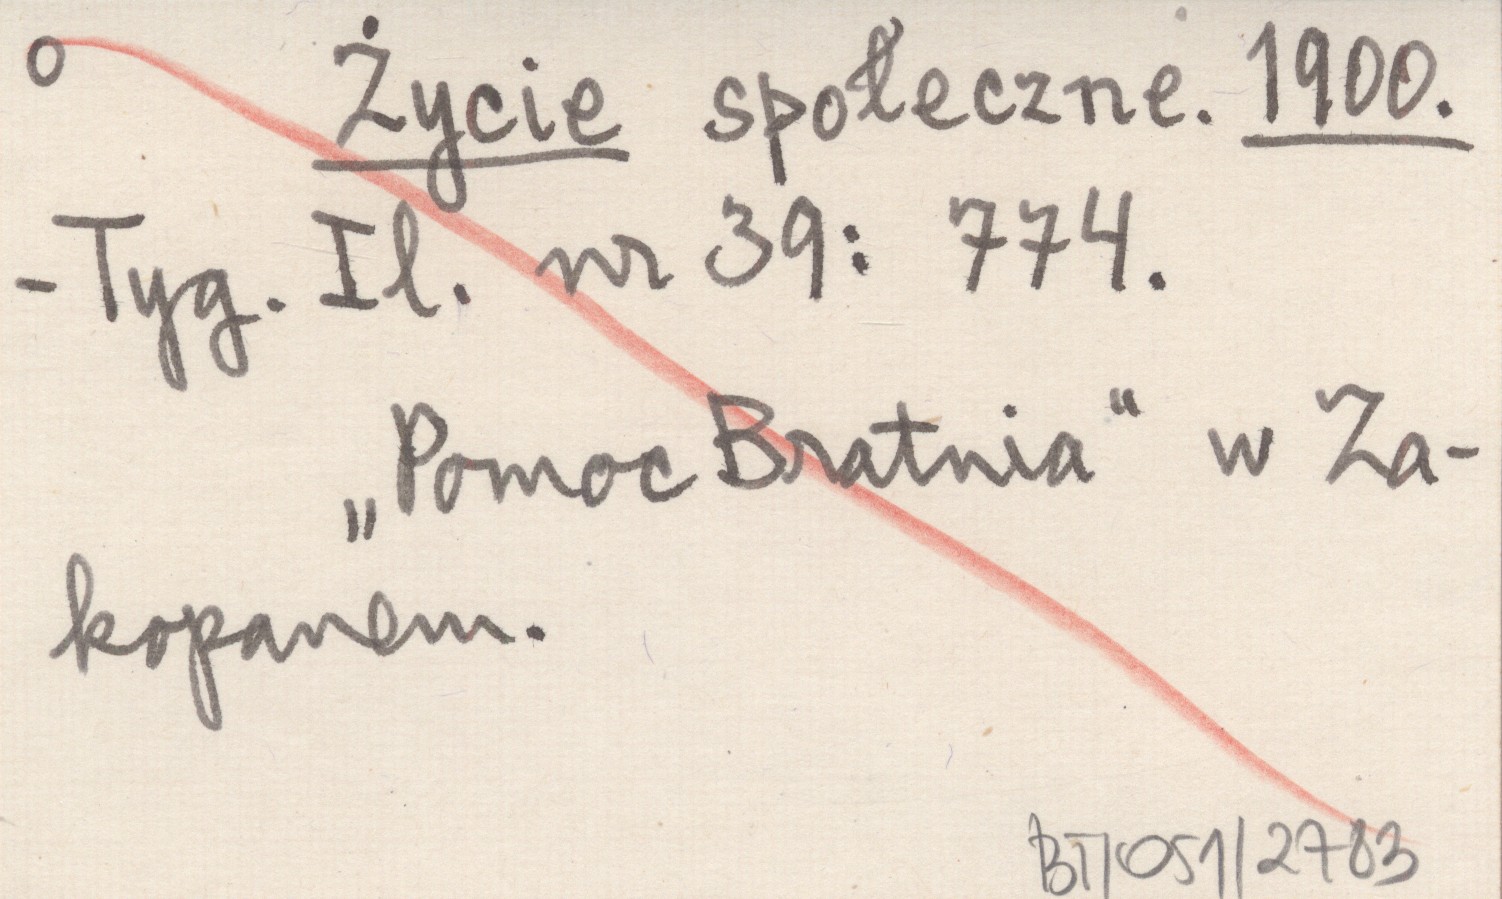 o Życie społeczne. 1900.
- Tyg. Il. nr 39: 774.
„Pomoc Bratnia“ w Za-
kopanem.
BT/051/2783